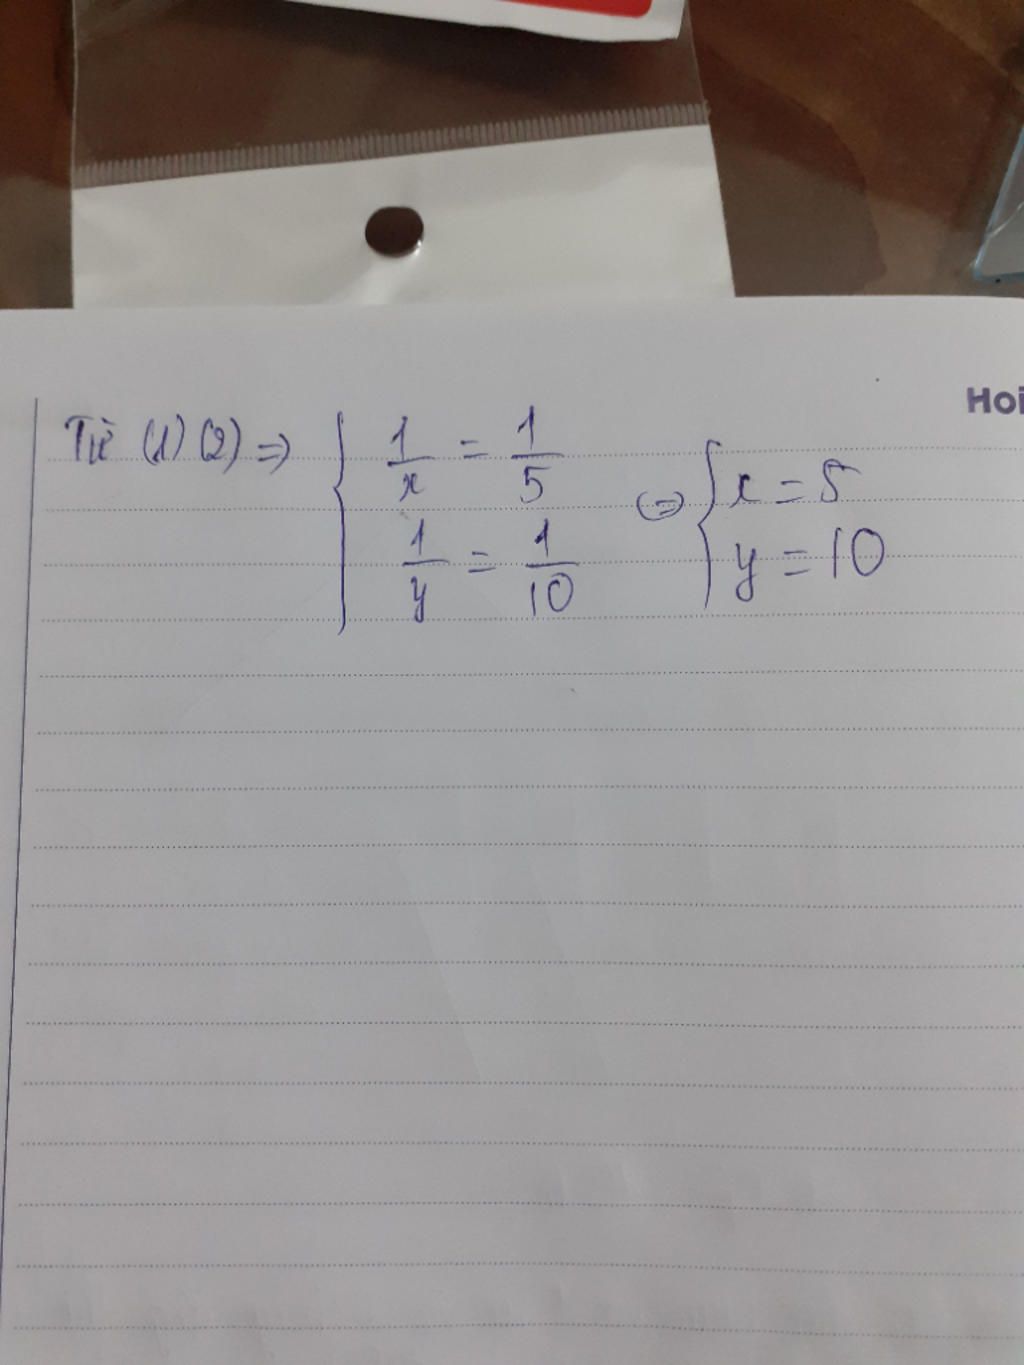 Hoi
Từ (1) (2) => { 1/x = 1/5 <=> { x = 5
1/y = 1/10 y = 10